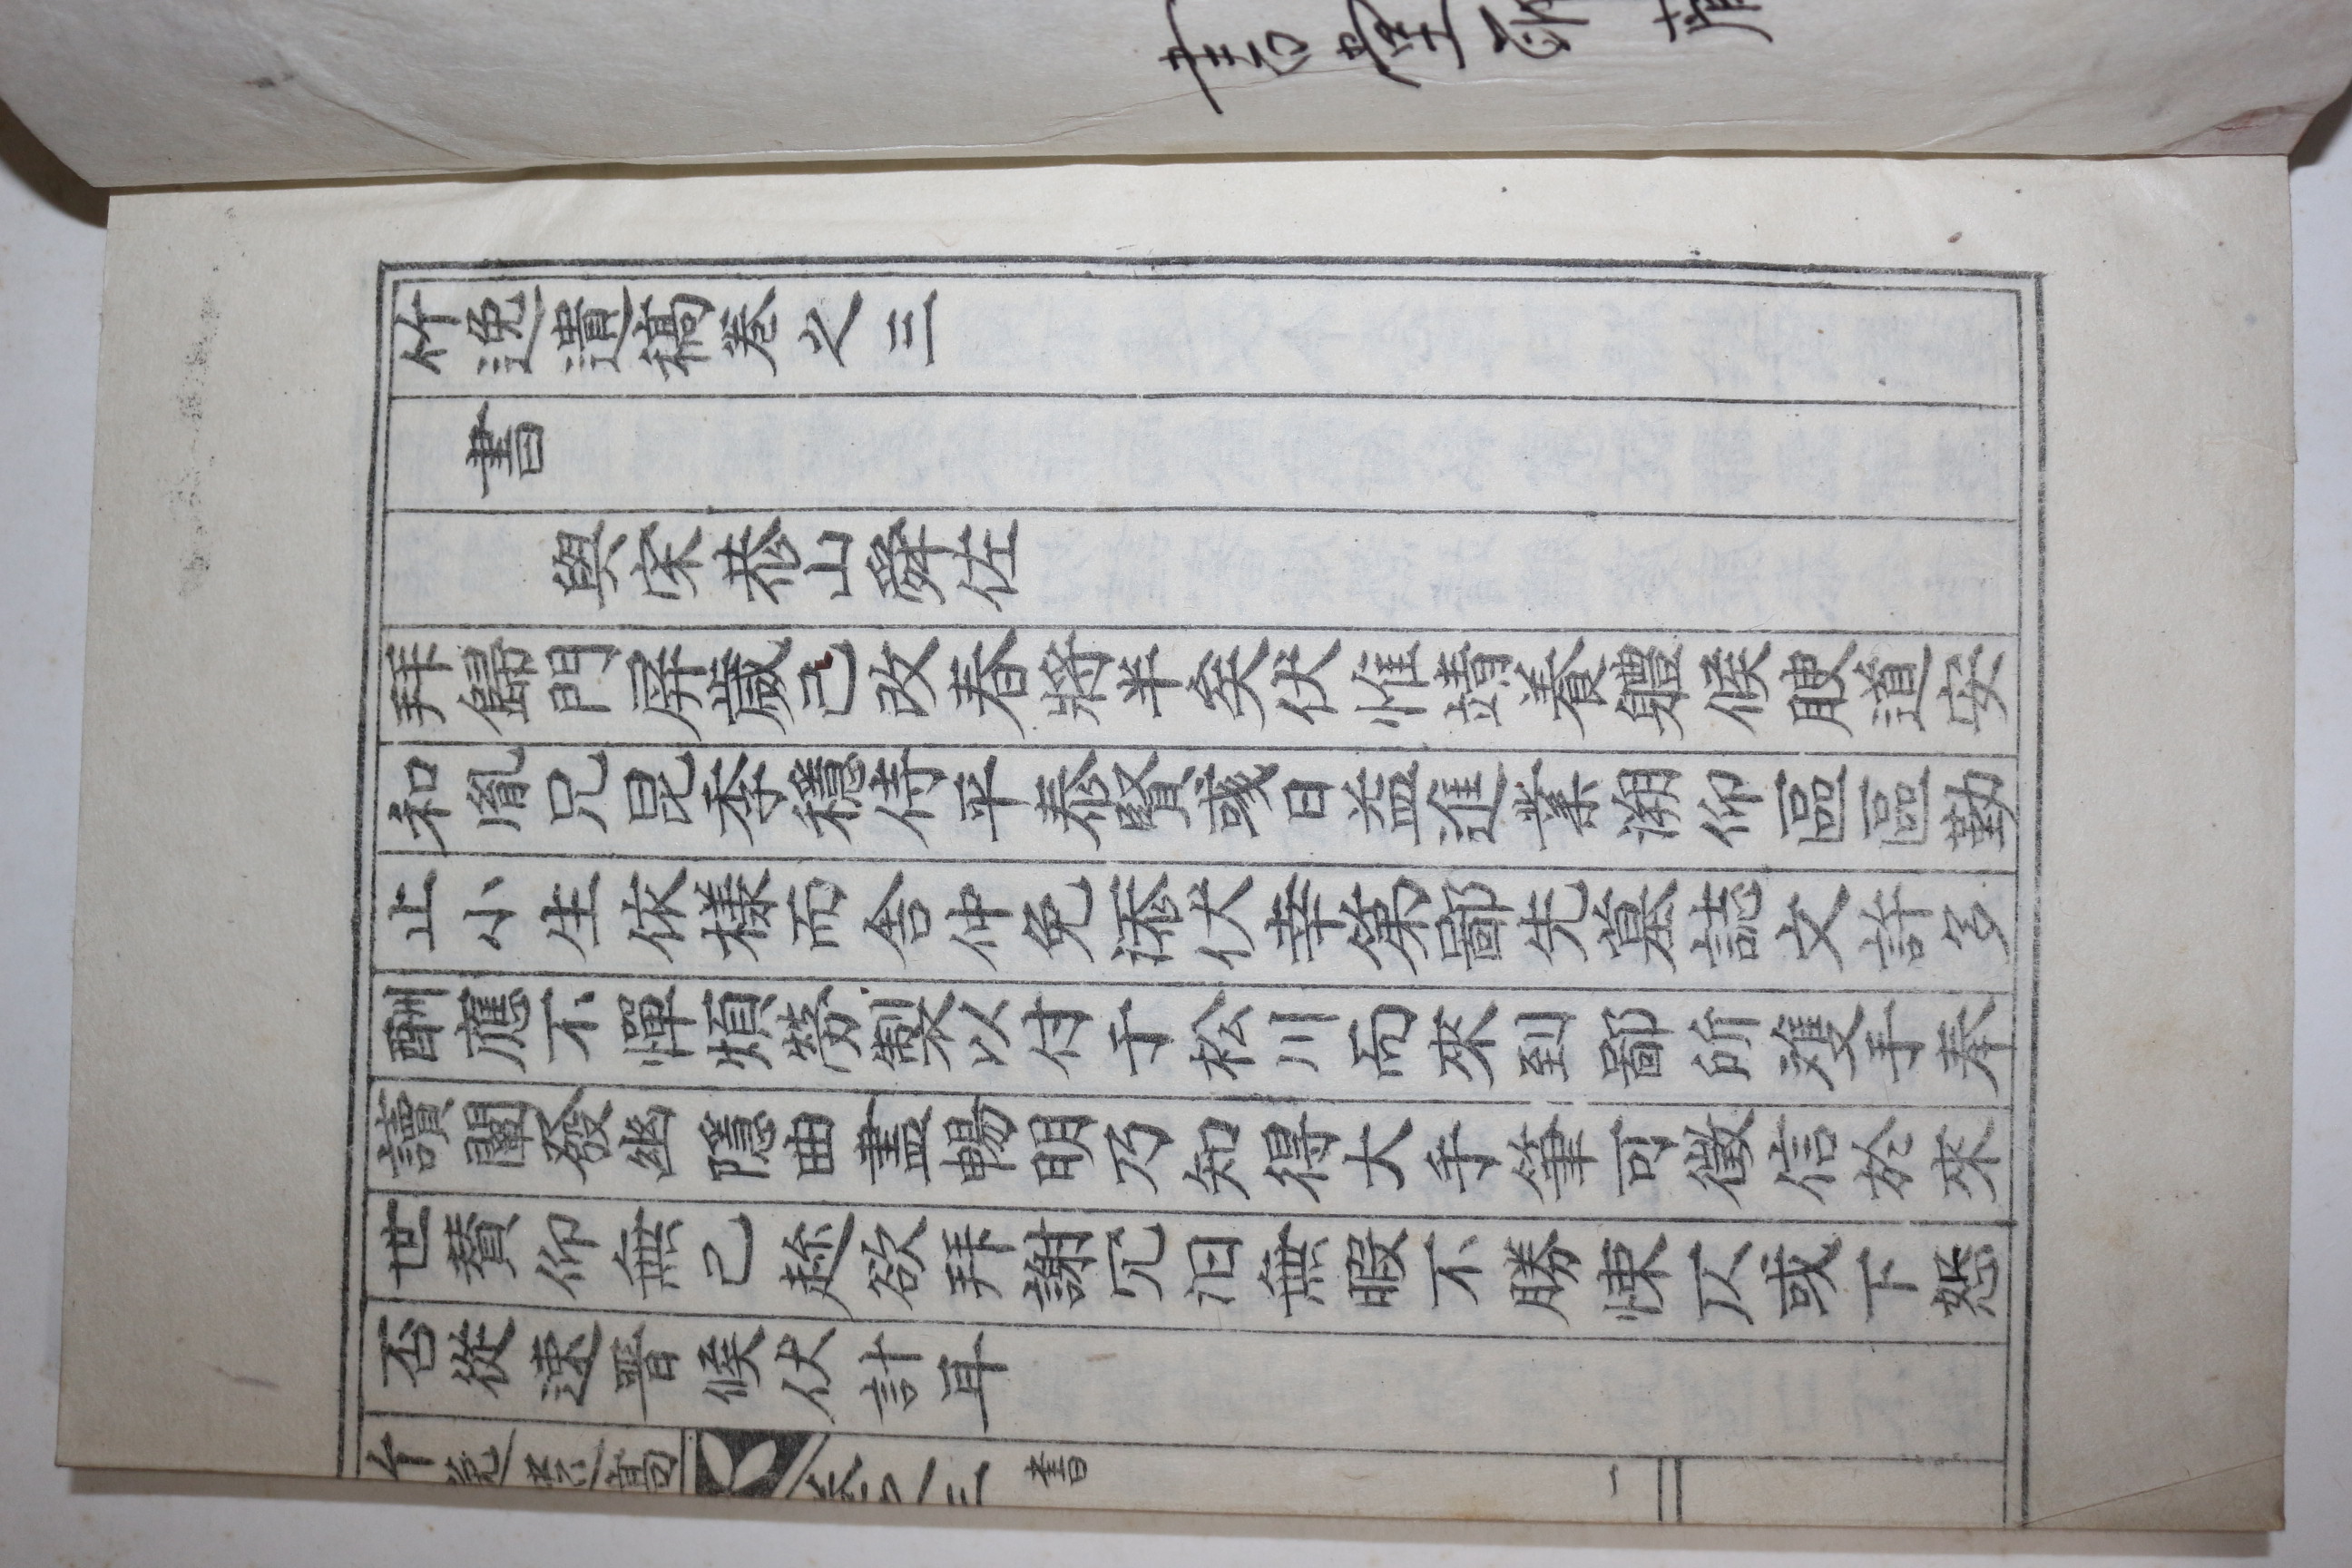 竹逸遺稿卷之三
書
與宋恭山舜佐
拜歸門屏歲已改春將半矣伏惟靖養軆候腴道安
和胤兄昆季穩侍平泰賢彧日益進業溯仰區區勤
止小生依樣而舍仲免添伏幸第鄙先墓誌文許多
酬應不憚煩勞製以付于松川而來到鄙所雙手奉
讀闡發幽隱曲盡暢明乃知得大手筆可徵信於來
世贊仰無已趍欲拜謝冗汨無暇不勝悚仄或下恕
否從速晋候伏計耳
竹逸遺稿 卷之三 書 一